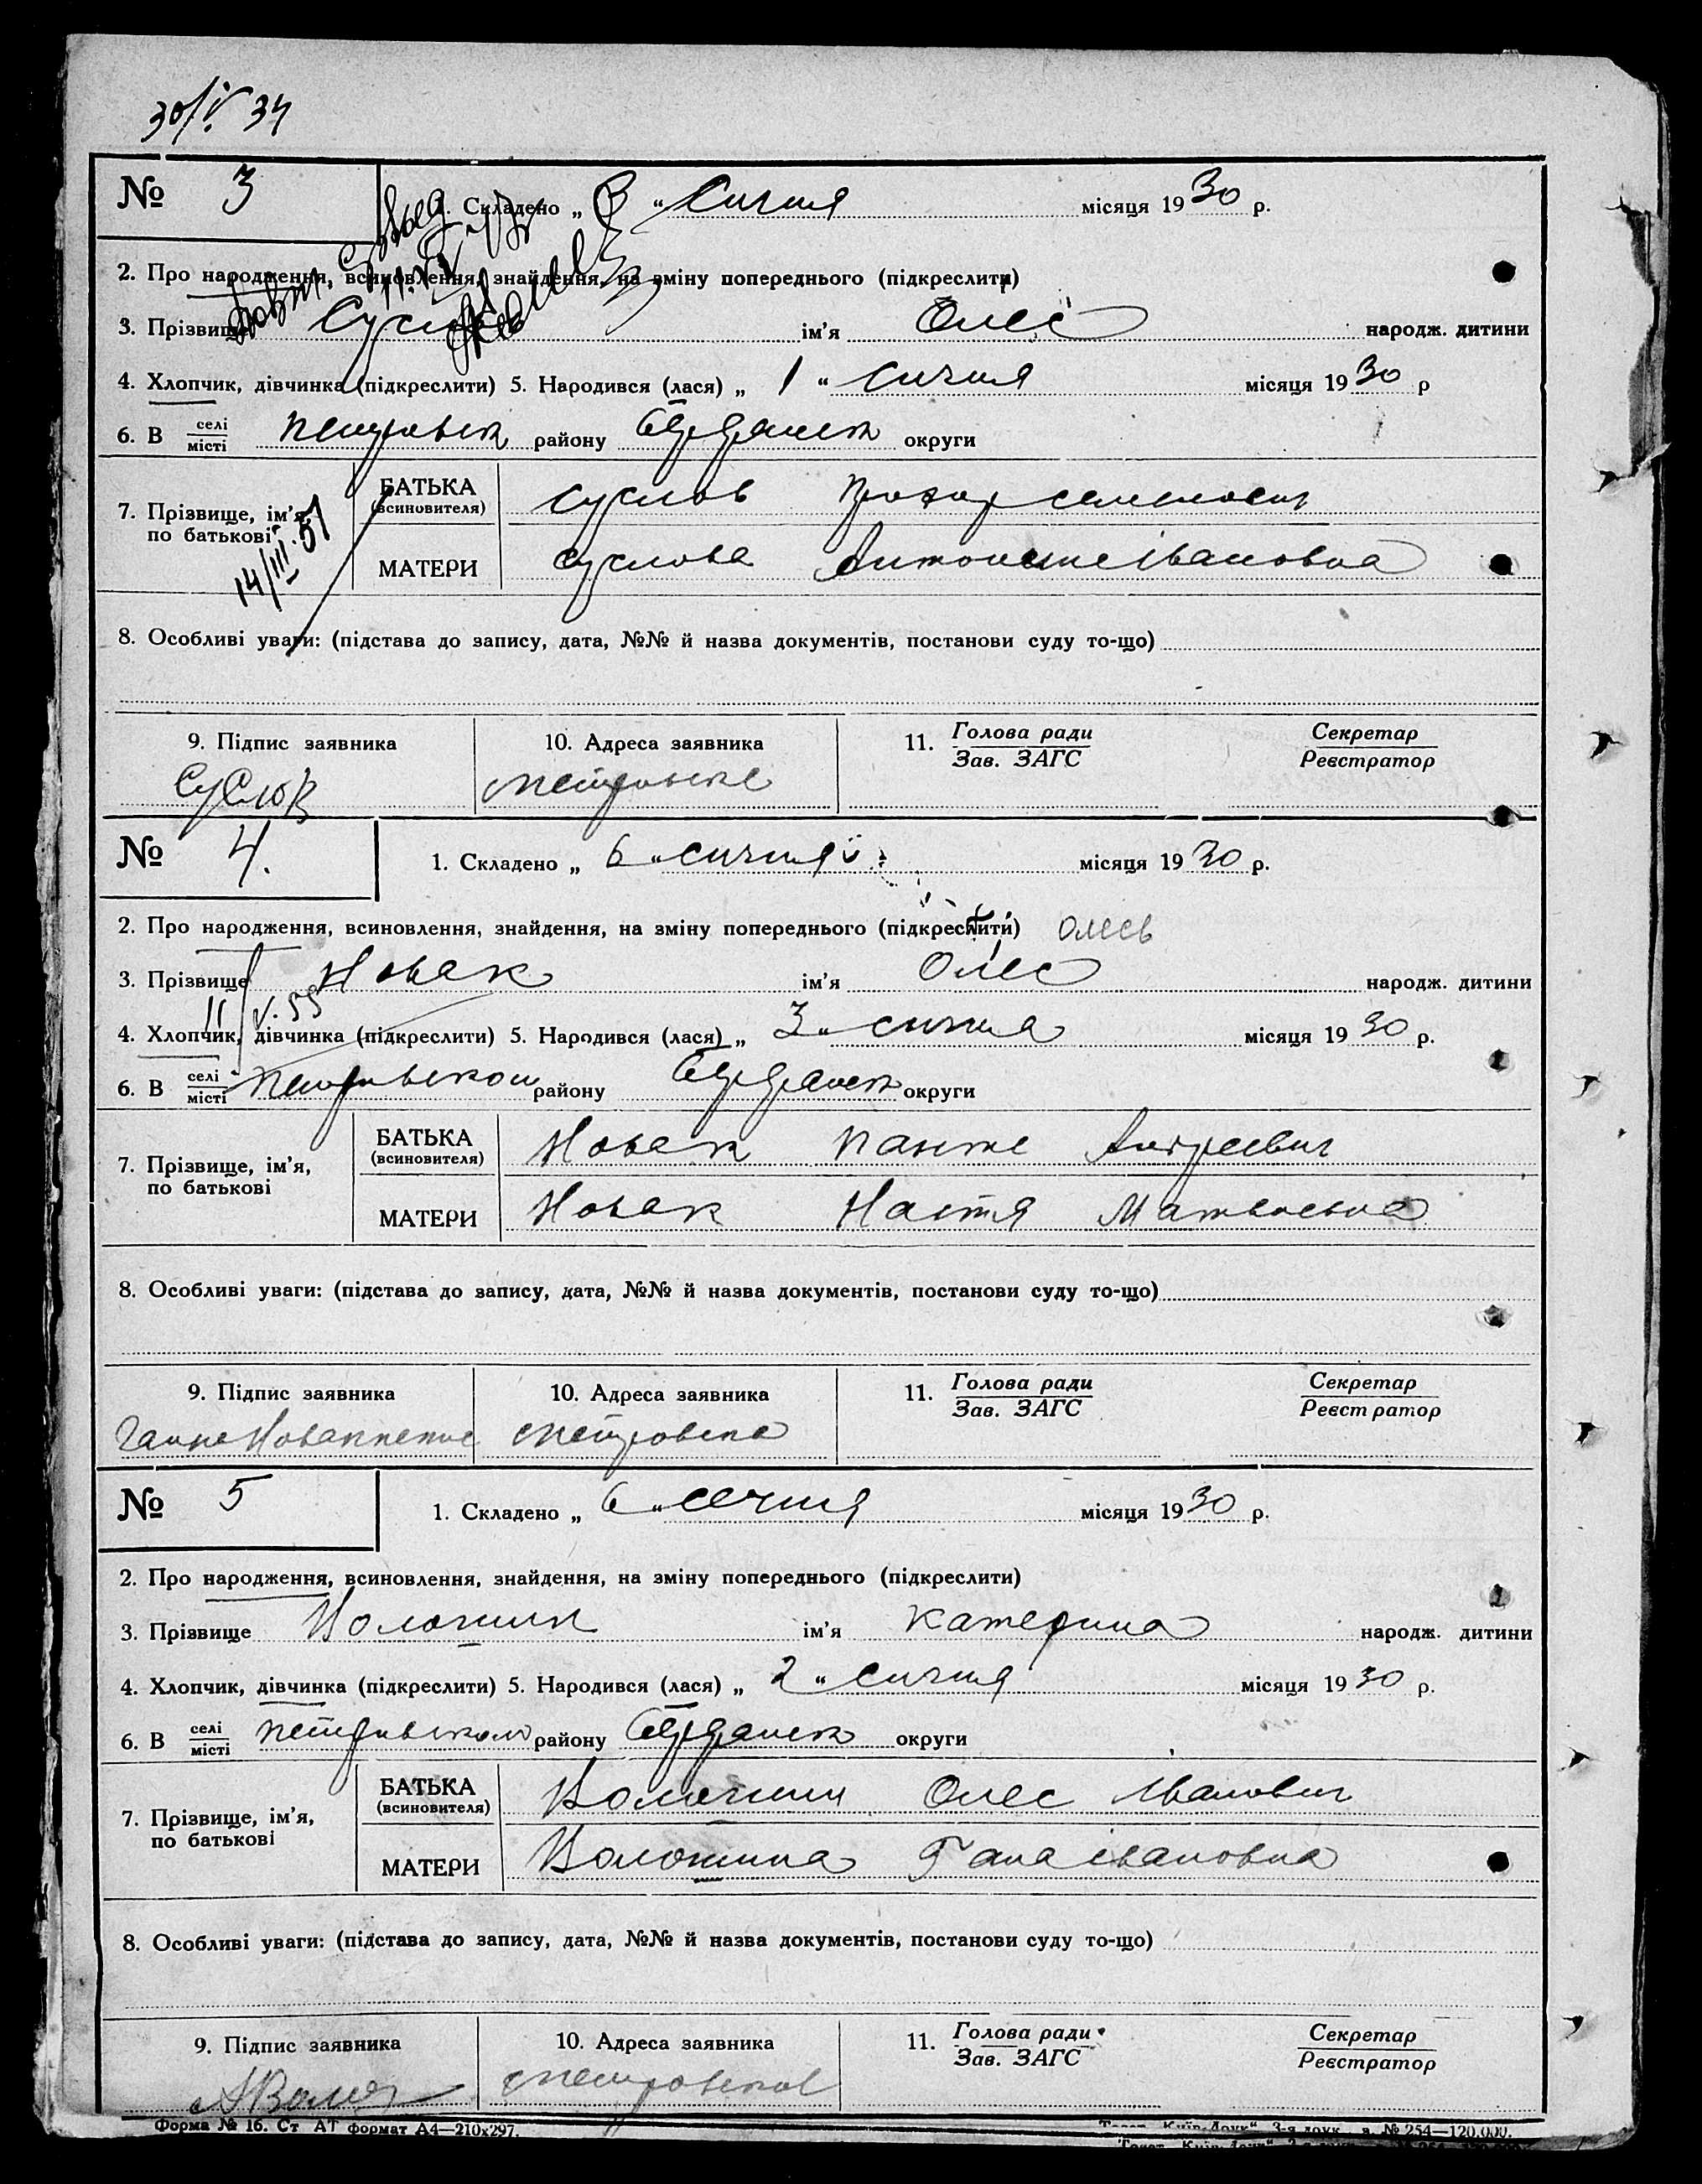 30/V 34
№ 3
1. Складено „ 3 “ сичня місяця 1930 р.
2. Про народження, всиновлення, знайдення, на зміну попереднього (підкреслити)
3. Прізвище Суслов ім’я Олес народж. дитини
4. Хлопчик, дівчинка (підкреслити) 5. Народився (лася) „ 1 “ сичня місяця 1930 р
6. В селі місті Петровск району Бердянск округи
7. Прізвище, ім’я, по батькові
БАТЬКА (всиновителя) Суслов Прохор Семенович
МАТЕРИ Суслова Антонина Івановна
14/III. 51
8. Особливі уваги: (підстава до запису, дата, №№ й назва документів, постанови суду то-що)
9. Підпис заявника 10. Адреса заявника 11. Голова ради Зав. ЗАГС Секретар Реєстратор
Суслов
№ 4.
1. Складено „ 6 “ сичня місяця 1930 р.
2. Про народження, всиновлення, знайдення, на зміну попереднього (підкреслити) Олесь
3. Прізвище Новак ім’я Олес народж. дитини
11/V. 55
4. Хлопчик, дівчинка (підкреслити) 5. Народився (лася) „ 3 “ сичня місяця 1930 р.
6. В селі місті Петровском району Бердянск округи
7. Прізвище, ім’я, по батькові
БАТЬКА (всиновителя) Новак Андреевич
МАТЕРИ Новак Настя Матвиевна
8. Особливі уваги: (підстава до запису, дата, №№ й назва документів, постанови суду то-що)
9. Підпис заявника 10. Адреса заявника 11. Голова ради Зав. ЗАГС Секретар Реєстратор
№ 5
1. Складено „ 6 “ сечня місяця 1930 р.
2. Про народження, всиновлення, знайдення, на зміну попереднього (підкреслити)
3. Прізвище Волошин ім’я Катерина народж. дитини
4. Хлопчик, дівчинка (підкреслити) 5. Народився (лася) „ 2 “ сичня місяця 1930 р.
6. В селі місті Петривском району Бердянск округи
7. Прізвище, ім’я, по батькові
БАТЬКА (всиновителя) Волошин Олес Иванович
МАТЕРИ Волошина Гана Івановна
8. Особливі уваги: (підстава до запису, дата, №№ й назва документів, постанови суду то-що)
9. Підпис заявника 10. Адреса заявника 11. Голова ради Зав. ЗАГС Секретар Реєстратор
Форма № 16. Ст АТ формат А4—210х297. № 254—120.000.